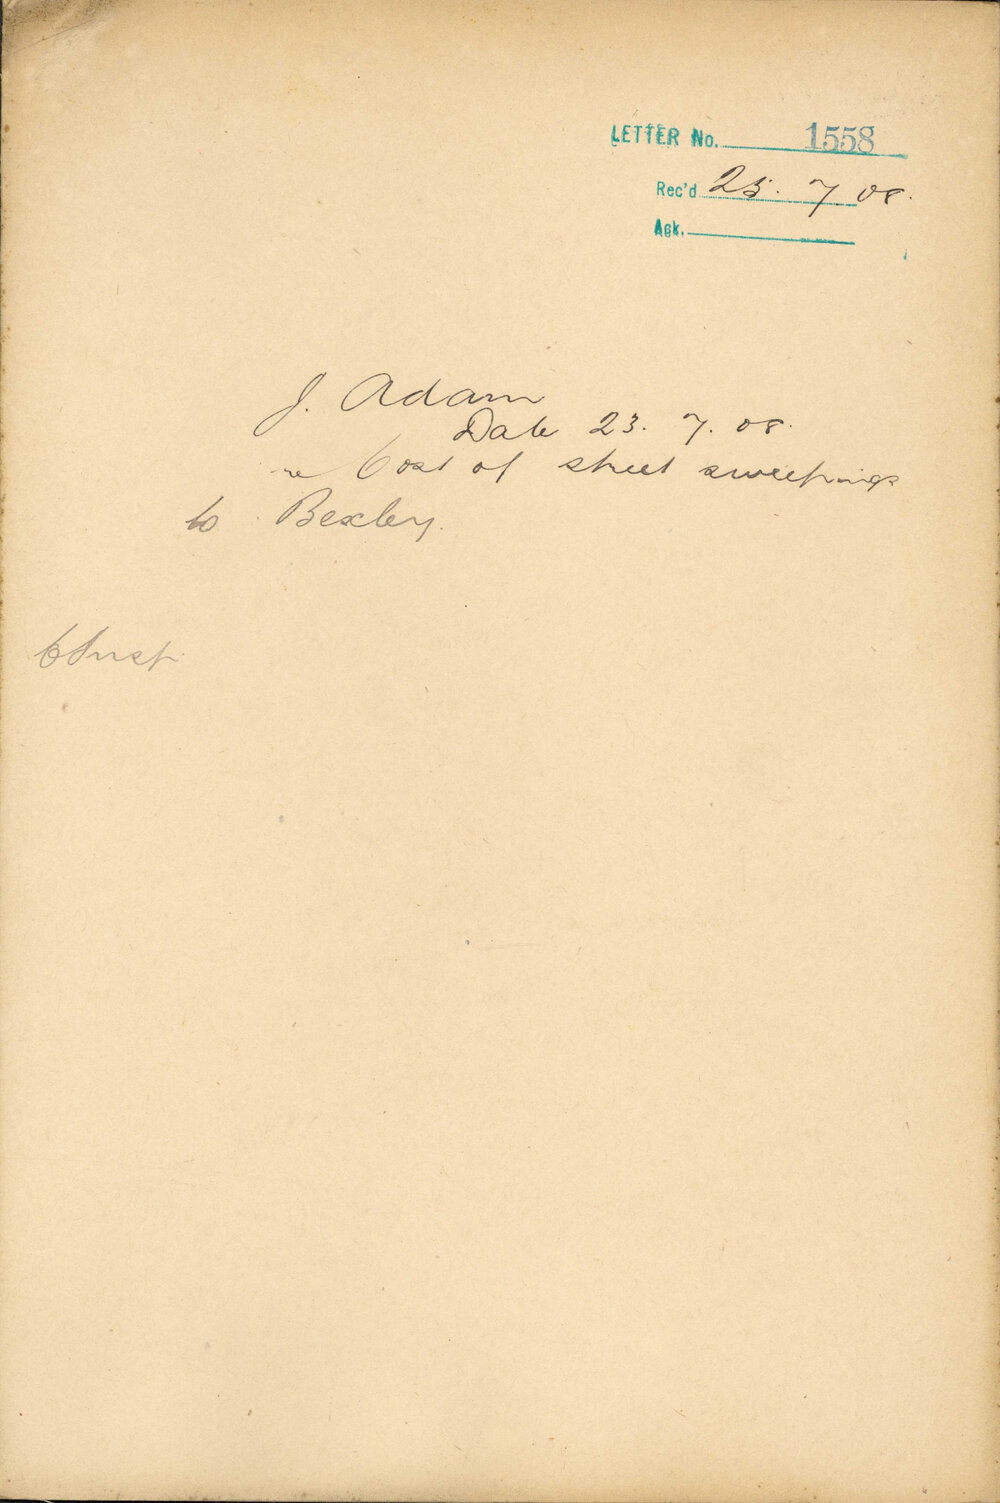 LETTER No. 1558
Rec'd 25. 7 08.
Ack.
J. Adam
Date 23. 7. 08.
re Cost of street sweepings
to Bexley.
C Insp.